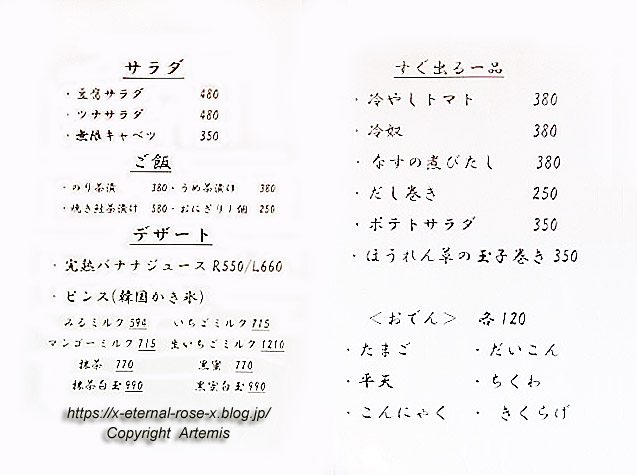 サラダ
・豆腐サラダ 480
・ツナサラダ 480
・無限キャベツ 350
ご飯
・のり茶漬 380・うめ茶漬け 380
・焼き鮭茶漬け 380・おにぎり1個 250
デザート
・完熟バナナジュース R550/L660
・ピンス(韓国かき氷)
みるミルク 594 いちごミルク 715
マンゴーミルク 715 生いちごミルク 1210
抹茶 770 黒蜜 770
抹茶白玉 990 黒蜜白玉 990
https://x-eternal-rose-x.blog.jp/
Copyright Artemis
すぐ出る一品
・冷やしトマト 380
・冷奴 380
・なすの煮びたし 380
・だし巻き 250
・ポテトサラダ 350
・ほうれん草の玉子巻き 350
＜おでん＞ 各120
・たまご ・だいこん
・平天 ・ちくわ
・こんにゃく ・きくらげ